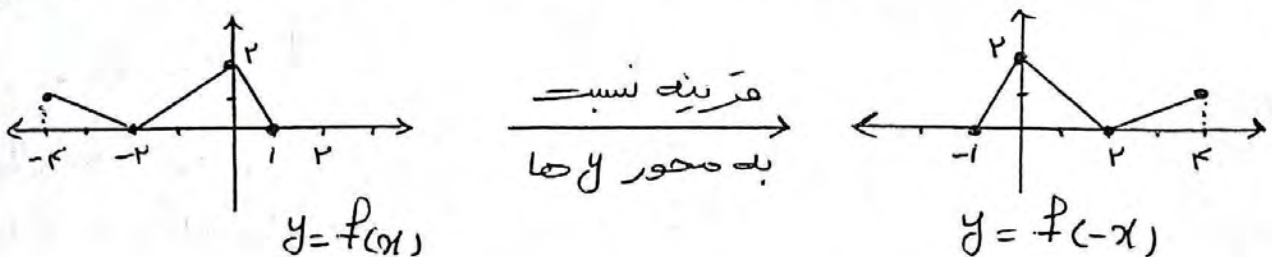 ۲
-۴ -۲ ۱ ۲
y = f(x)
قرینه نسبت
به محور y ها
۲
-۱ ۲ ۴
y = f(-x)